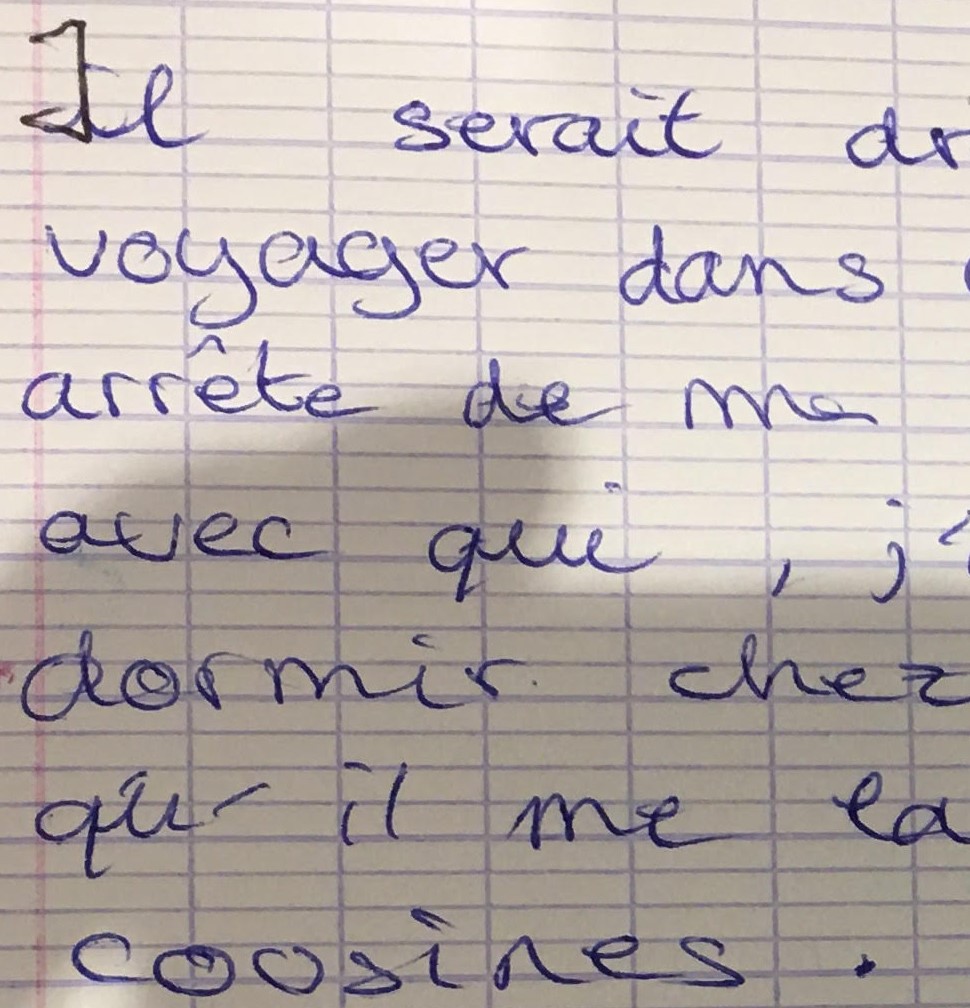 Il serait dr
voyager dans
arrête de me
avec qui, j'
dormir chez
qu'il me la
coosines.